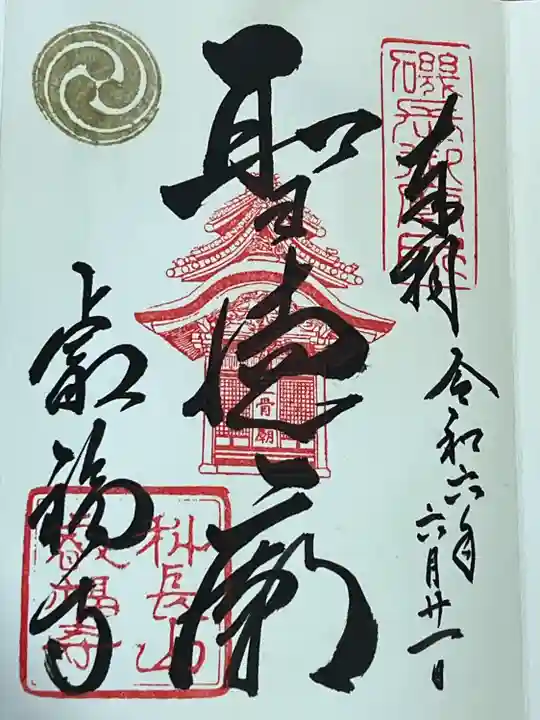 磯長御廟所
奉拝
令和六年
六月廿一日
聖徳廟
骨
廟
叡福寺
科長山
叡福寺